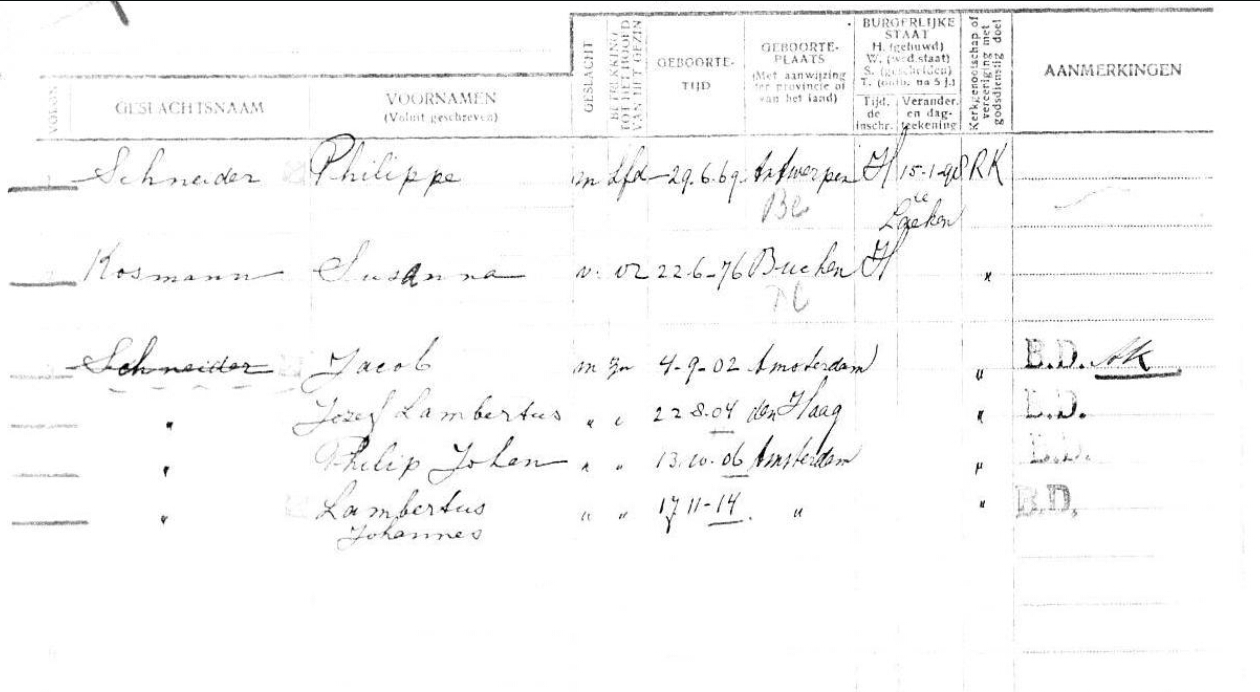 VOLGN.
GESLACHTSNAAM
VOORNAMEN
(Voluit geschreven)
GESLACHT
BETREKKING
TOT HET HOOFD
VAN HET GEZIN
GEBOORTE-
TIJD
GEBOORTE-
PLAATS
(Met aanwijzing
der provincie of
van het land)
BURGERLIJKE
STAAT
H. (gehuwd)
W. (wed.staat)
S. (gescheiden)
T. (ontb. na 5 j.)
Tijd.
de
inschr.
Verander.
en dag-
teekening
Kerkgenootschap of
vereeniging met
godsdienstig doel
AANMERKINGEN
Schneider Philippe m hfd 29.6.69. Antwerpen H 15-1-98 RK
Be te
Laeken
Kosmann Susanna v. vr 22-6-76 Buchen H "
Schneider Jacob m zn 4-9-02 Amsterdam " B.D.
" Jozef Lambertus " " 22 8-04 den Haag " B.D.
" Philip Johan " " 13-10-06 Amsterdam " B.D.
" Lambertus " " 17 11-14. " " B.D.
Johannes